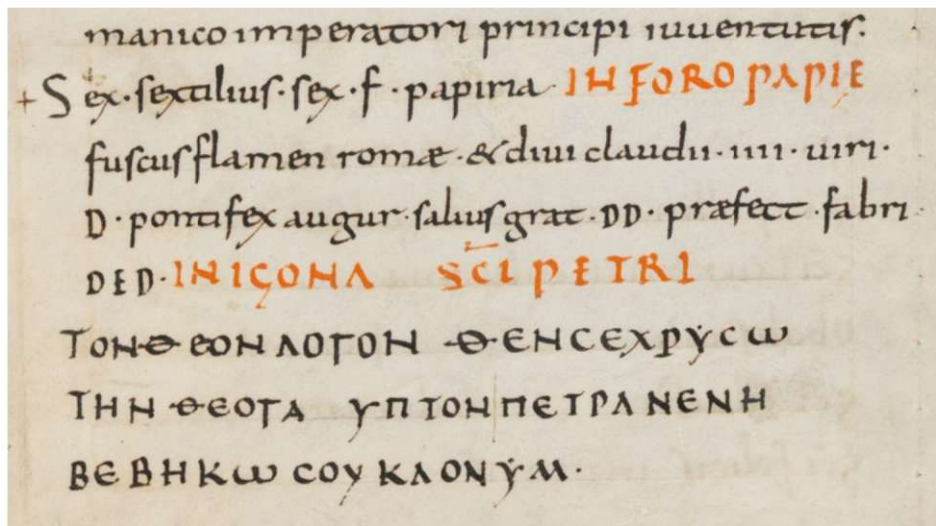 manico imperatori principi iuuentutis.
+ Sex·sextilius·sex·f·papiria· IN FORO PAPIE
fuscus flamen romæ·& diui claudii·IIII·uiri·
D·pontifex augur·saluus grat·DD·præfect·fabri
DED·IN IÇONA SCI PETRI
ΤΟΝΘΕΟΝΛΟΓΟΝ ΘΕΝСΕΧΡΥСω
ΤΗΝΘΕΟΓΑ ΥΠΤΟΝΠΕΤΡΑΝΕΝΗ
ΒΕΒΗΚω СΟΥΚΛΟΝΥΜ·